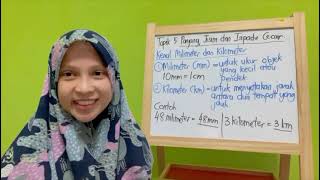 Topik 5 Panjang, Jisim dan Isipadu Cecair
Kenal Milimeter dan Kilometer
① Milimeter (mm) = untuk ukur objek
yang kecil atau
10mm = 1cm pendek
② Kilometer (km) = untuk menyatakan jarak
antara dua tempat yang
jauh
Contoh
48 milimeter = 48mm | 3 kilometer = 3 km